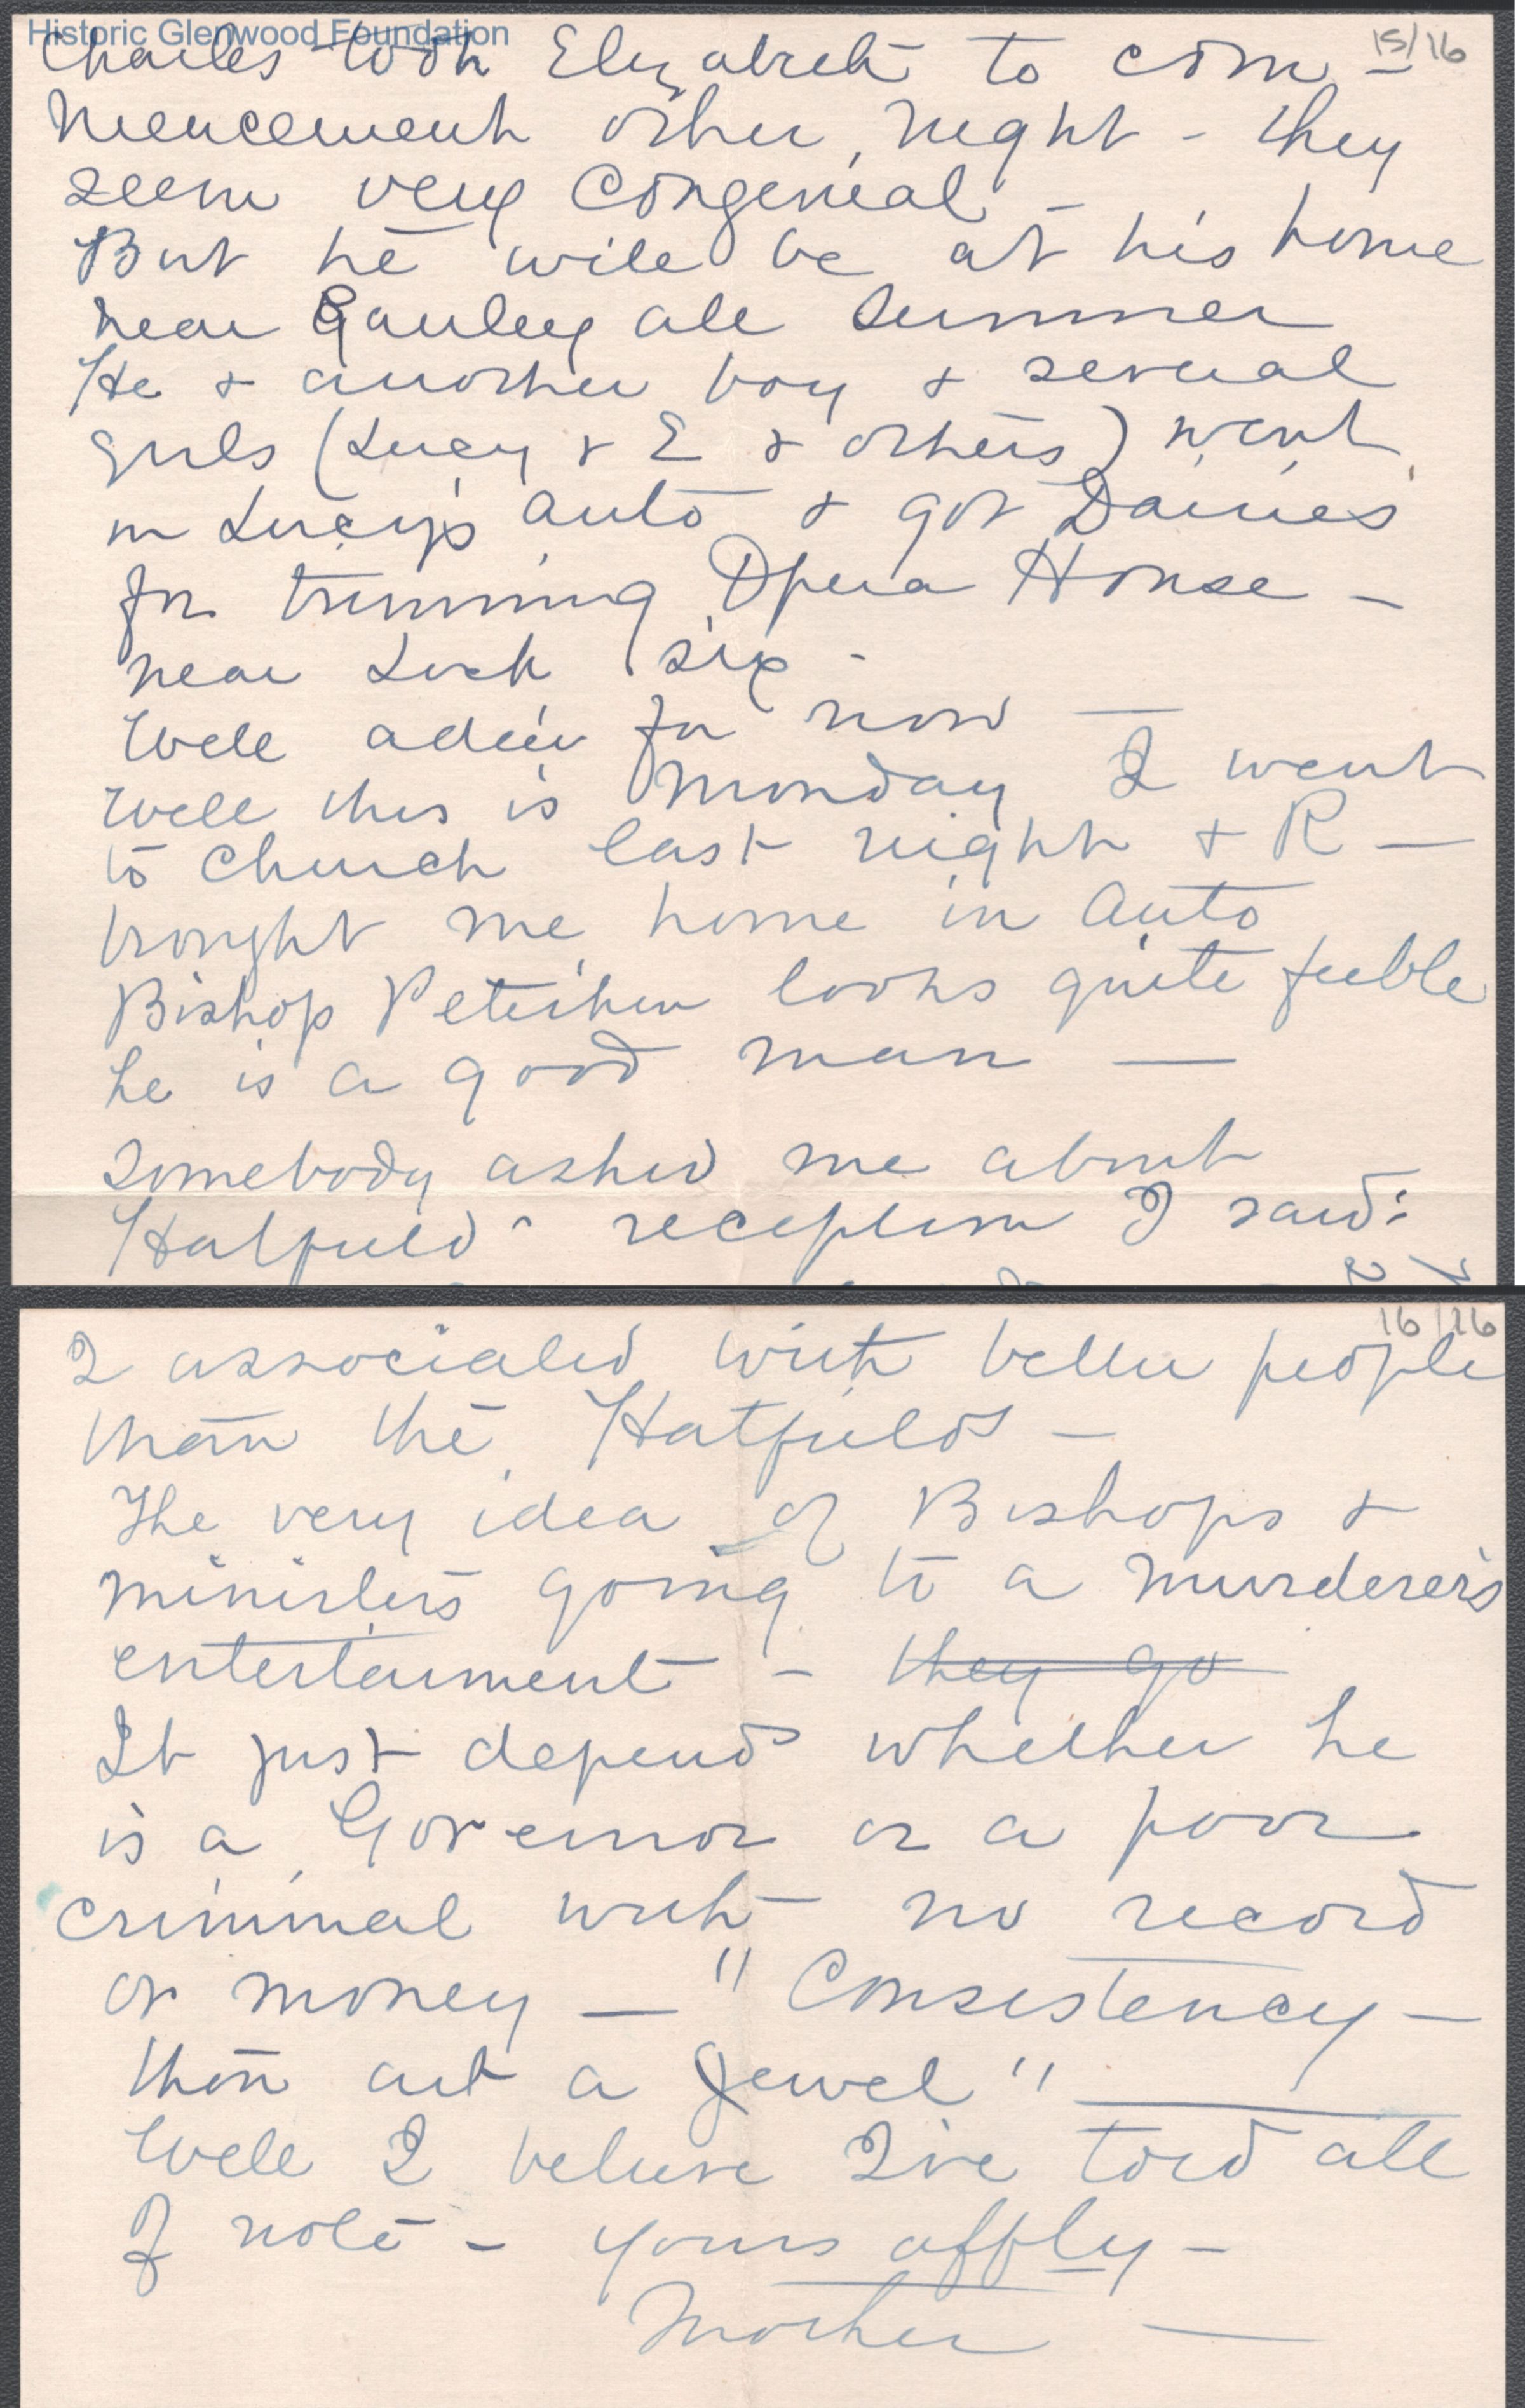 Historic Glenwood Foundation
15/16
Charles took Elizabeth to com-
mencement other night - they
seem very congenial -
But he will be at his home
near Gauley all summer
He & another boy & several
girls (Lucy & E & others) went
in Lucy's auto & got Daisies
for trimming Opera House -
near Lock six -
Well adieu for now —
Well this is Monday I went
to Church last night & R —
brought me home in auto
Bishop Peterkin looks quite feeble
he is a good man —
Somebody asked me about
Hatfield's reception I said:
16/16
I associated with better people
than the Hatfields -
The very idea of Bishops &
ministers going to a murderer's
entertainment - they go
It just depends whether he
is a Governor or a poor
criminal with no record
or money — "Consistency -
thou art a Jewel" —
Well I believe I've told all
of note - yours affly -
Mother —